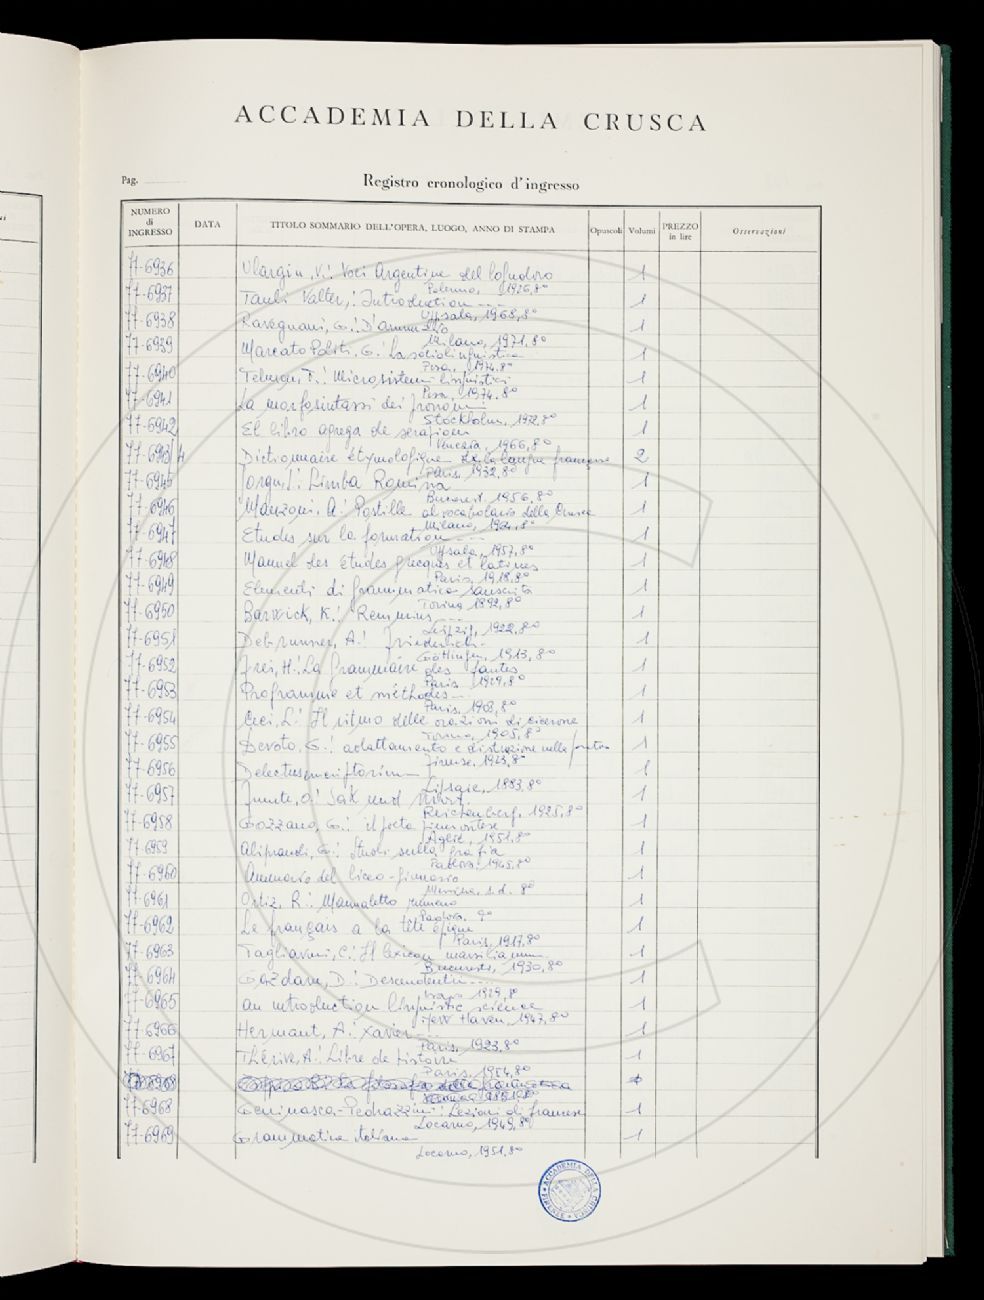 ACCADEMIA DELLA CRUSCA
Pag.
Registro cronologico d'ingresso
NUMERO di INGRESSO DATA TITOLO SOMMARIO DELL'OPERA, LUOGO, ANNO DI STAMPA Opuscoli Volumi PREZZO in lire Osservazioni
77-6936 V.: Voci Argentine del 1
Palermo, 1926, 8°
77-6937 Tauli Valter,: Introduction --- 1
Upsala, 1968, 8°
77-6938 Ravegnani, G.: D'annunzio 1
Milano, 1971, 8°
77-6939 Marcato Politi, G.: La sociolinguistica 1
Pisa, 1974, 8°
77-6940 Telmon, T.: Microsistemi linguistici 1
Pisa, 1974, 8°
77-6941 La morfosintassi dei pronomi 1
Stockholm, 1972, 8°
77-6942 El libro agrega de serapiom 1
Venezia, 1966, 8°
77-6943/4 Dictionnaire étymologique de la langue française 2
Paris, 1932, 8°
77-6945 Iorgu,: Limba Romina 1
Bucarest, 1956, 8°
77-6946 Manzoni, A: Postille al vocabolario della Crusca 1
Milano, 8°
77-6947 Etudes sur la formation --- 1
Upsala, 1957, 8°
77-6948 Manuel des études grecques et latines 1
Paris, 1918, 8°
77-6949 Elementi di grammatica sanscrita 1
Torino 1892, 8°
77-6950 Barwick, K.: Remmius --- 1
Leipzig, 1922, 8°
77-6951 Debrunner, A.: 1
Göttingen, 1913, 8°
77-6952 Frei, H.: La grammaire des fautes 1
Paris, 1929, 8°
77-6953 Programme et méthodes --- 1
Paris, 1908, 8°
77-6954 Ceci, L: Il ritmo delle orazioni di cicerone 1
Torino, 1905, 8°
77-6955 Devoto, G.: adattamento e distinzione nella 1
Firenze, 1923, 8°
77-6956 Delectus inscriptorium --- 1
Lipsaie, 1883, 8°
77-6957 O: Sak und 1
Reichenberg, 1925, 8°
77-6958 Gozzano, G.: il poeta piemontese 1
Agliè, 1951, 8°
77-6959 Aliprandi, G.: Studi sulla grafia 1
Padova, 1945, 8°
77-6960 Annuario del liceo-ginnasio 1
Messina, s.d. 8°
77-6961 Ortiz, R.: Manualetto rumeno 1
Padova, 8°
77-6962 Le français a la tête épique 1
Paris, 1917, 8°
77-6963 Tagliavini, C.: Il lexicon marsilianum 1
Bucuresti, 1930, 8°
77-6964 Gazdaru, D.: Descendentii --- 1
Iasi, 1929, 8°
77-6965 an introduction linguistic science 1
New Haven, 1947, 8°
77-6966 Hermant, A: Xavier 1
Paris, 1923, 8°
77-6967 Thérive, A: Libre de histoire 1
Paris, 1954, 8°
77-6968 Geninasca-Pedrazzini: Lezioni di francese 1
Locarno, 1949, 8°
77-6969 Grammatica italiana 1
Locarno, 1951, 8°
ACCADEMIA DELLA CRUSCA FIRENZE